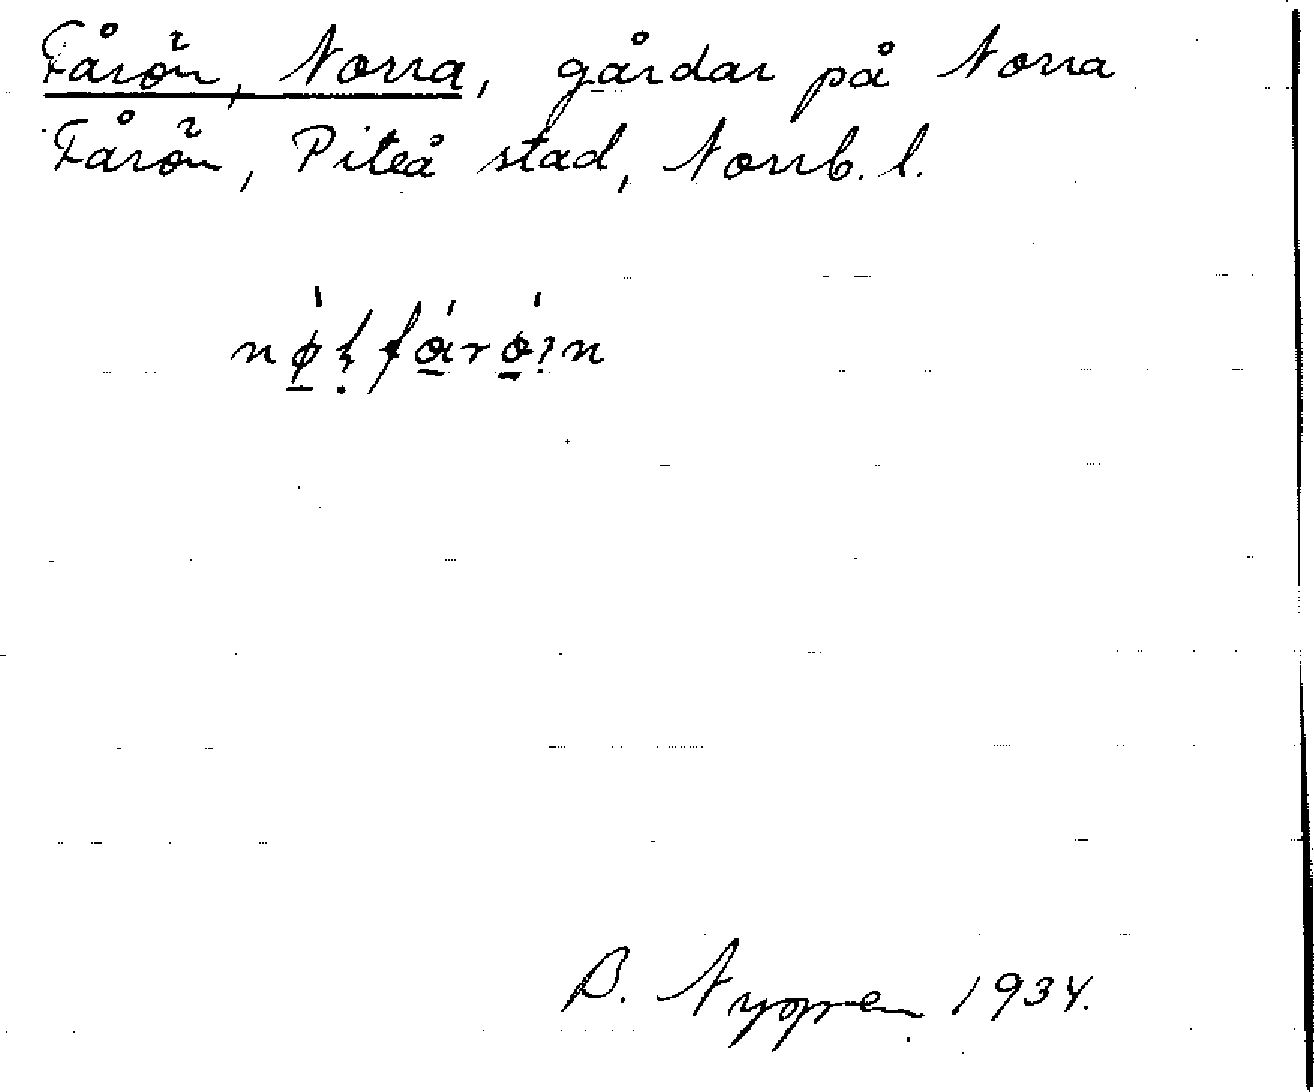 Fårön, Norra, gårdar på Norra
Fårön, Piteå stad, Norrb. l.
B. Nyopren 1934.